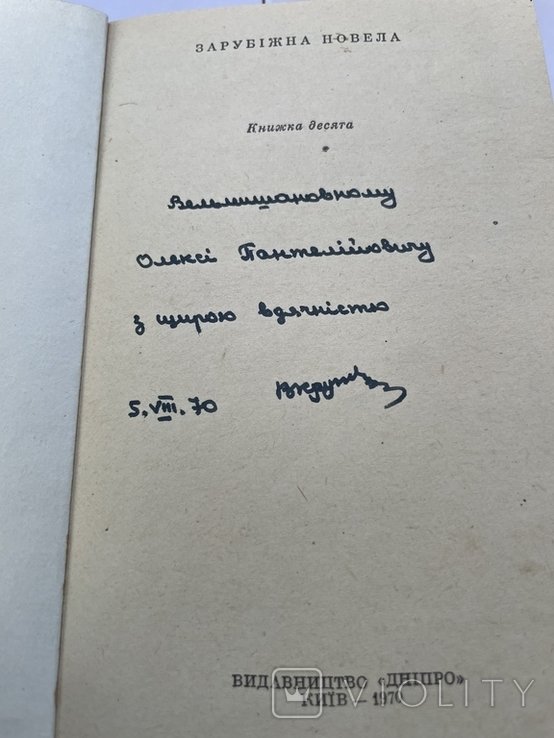 ЗАРУБІЖНА НОВЕЛА
Книжка десята
Вельмишановному
Олексі Пантелійовичу
з щирою вдячністю
5.VIII.70
ВИДАВНИЦТВО «ДНІПРО»
КИЇВ — 1970
VIOLITY